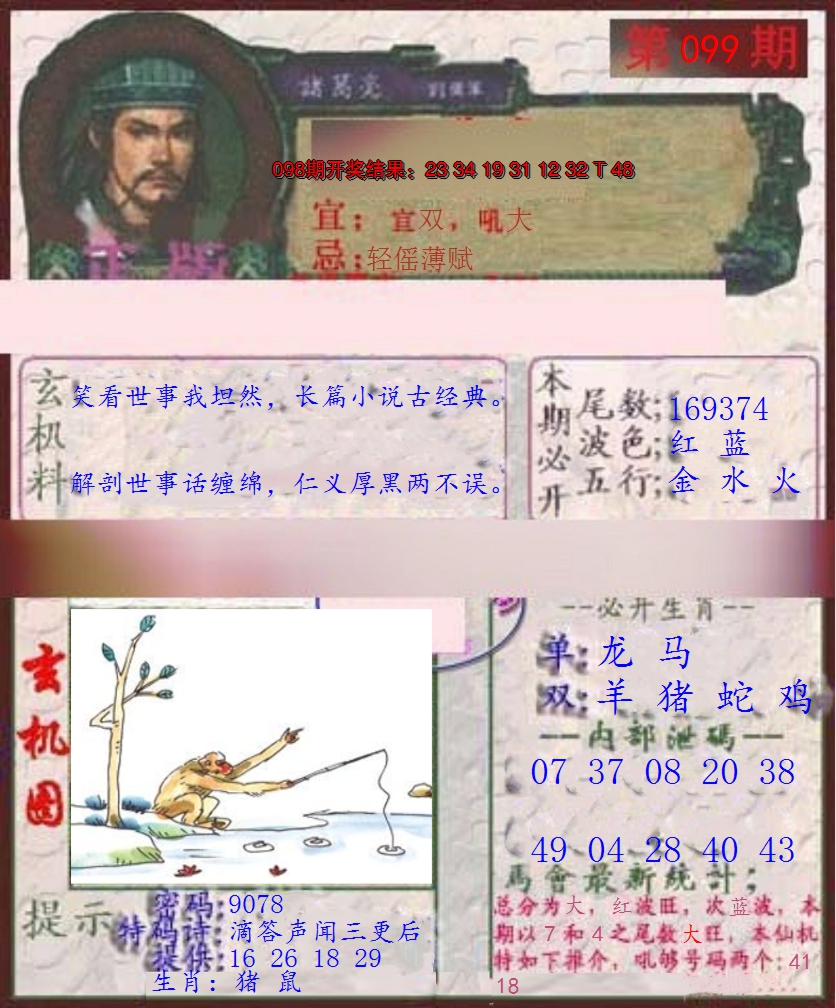 第 099 期
諸葛亮
098期开奖结果: 23 34 19 31 12 32 T 48
宜：宜双，吼大
忌：轻傜薄赋
正版
玄机料
笑看世事我坦然，长篇小说古经典。
解剖世事话缠绵，仁义厚黑两不误。
本期必开
尾数；169374
波色；红 蓝
五行；金 水 火
玄机图
--必开生肖--
单：龙 马
双：羊 猪 蛇 鸡
--内部泄碼--
07 37 08 20 38
49 04 28 40 43
馬會最新統計；
总分为大，红波旺，次蓝波，本
期以7和4之尾数大旺，本仙机
特如下推介，吼够号码两个：41
18
提示
密码：9078
特码诗：滴答声闻三更后
提供：16 26 18 29
生肖：猪 鼠